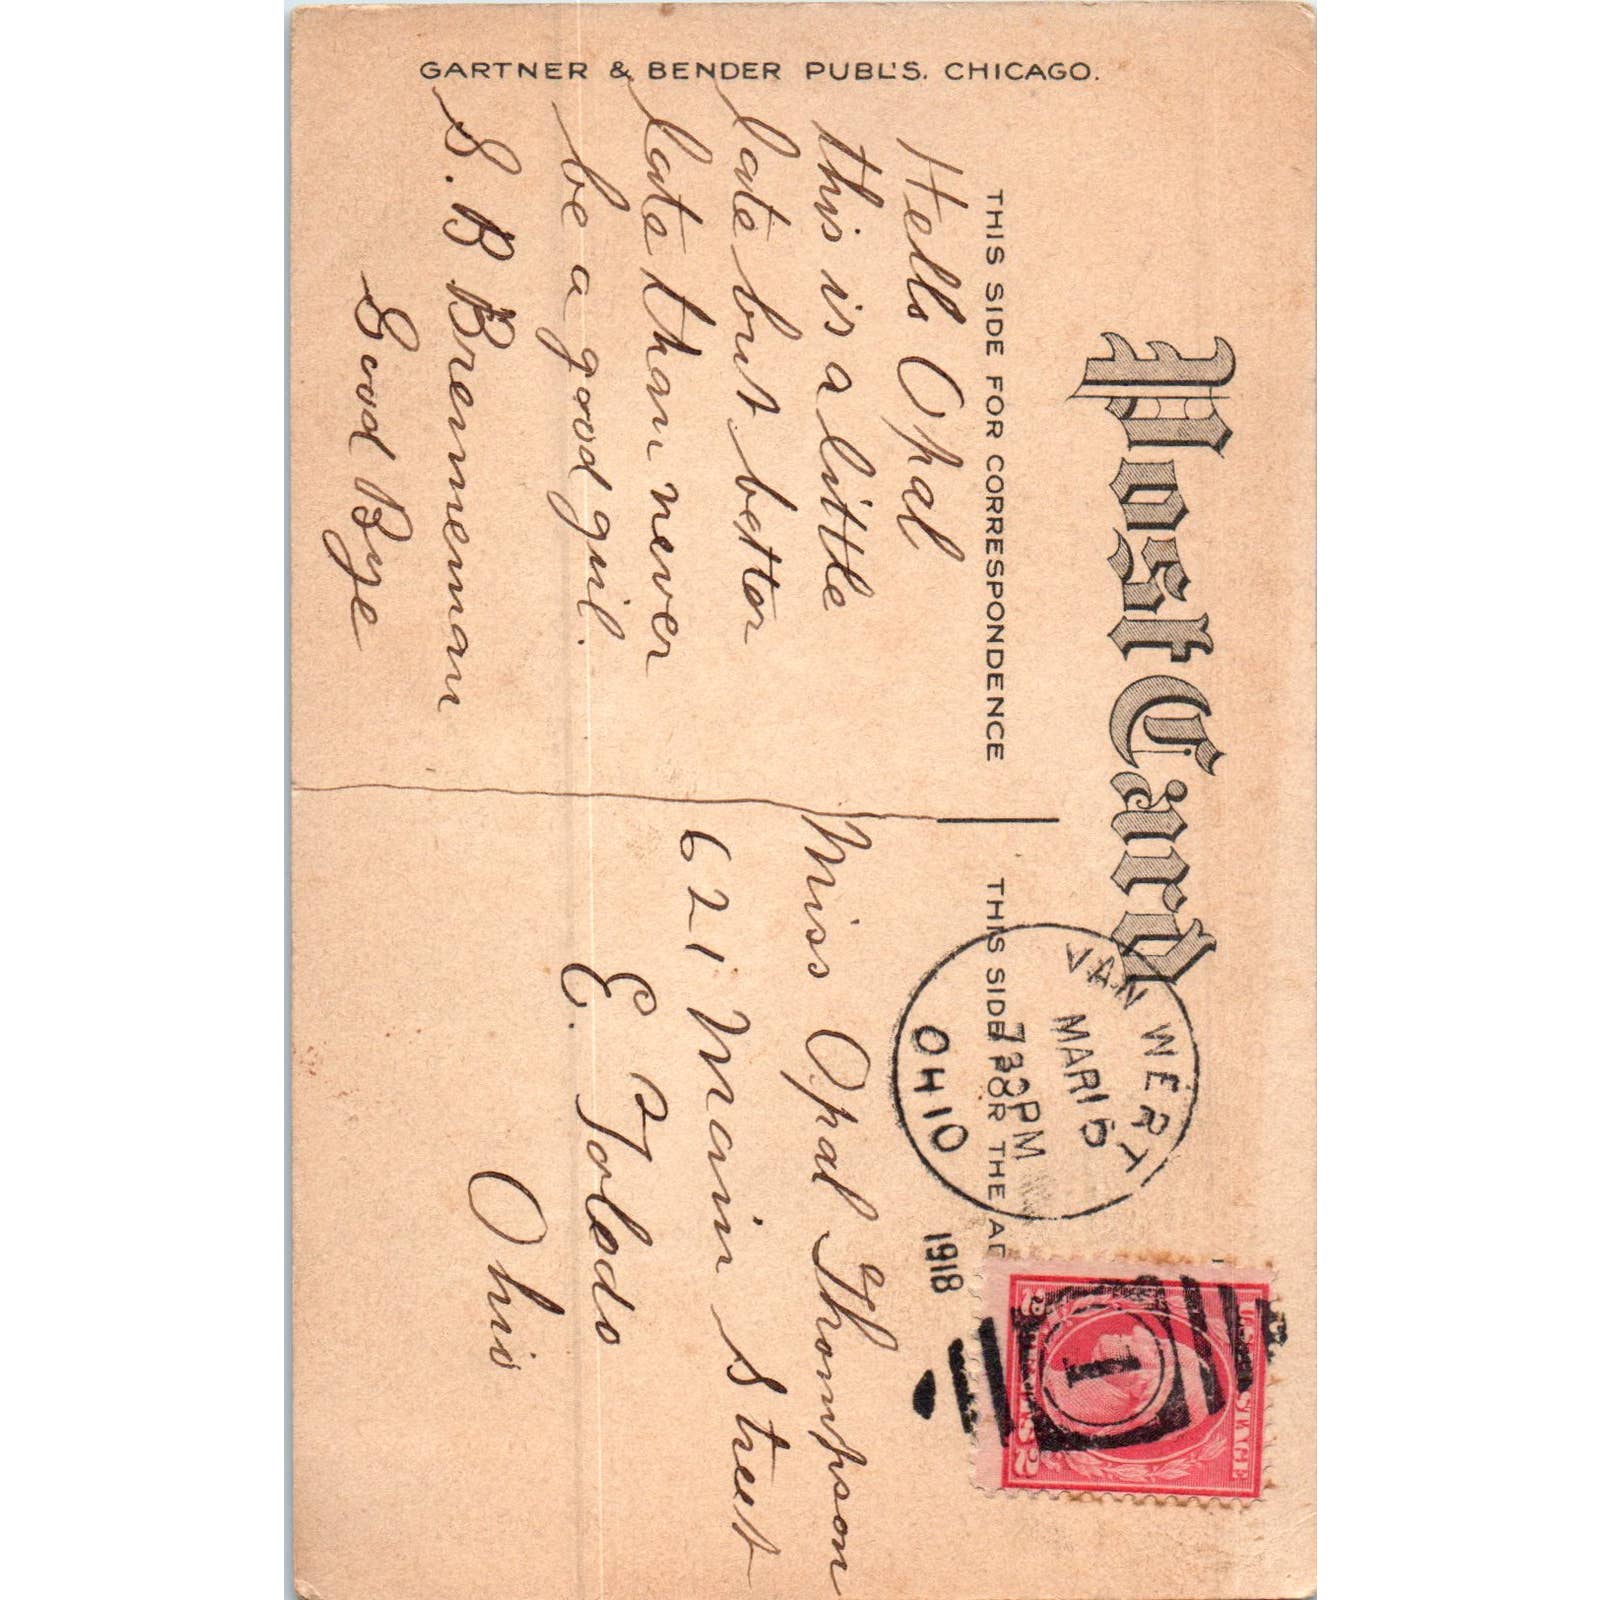 Post Card
THIS SIDE FOR CORRESPONDENCE
THIS SIDE FOR THE AD
GARTNER & BENDER PUBL'S. CHICAGO.
Hello Opal
this is a little
late but better
late than never
be a good girl.
S. B Brenneman
Good Bye
VAN WERT
MAR 15
7 30 PM
OHIO
1918
U.S. POSTAGE
2 CENTS 2
1
Miss Opal Thompson
621 Main Street
E. Toledo
Ohio